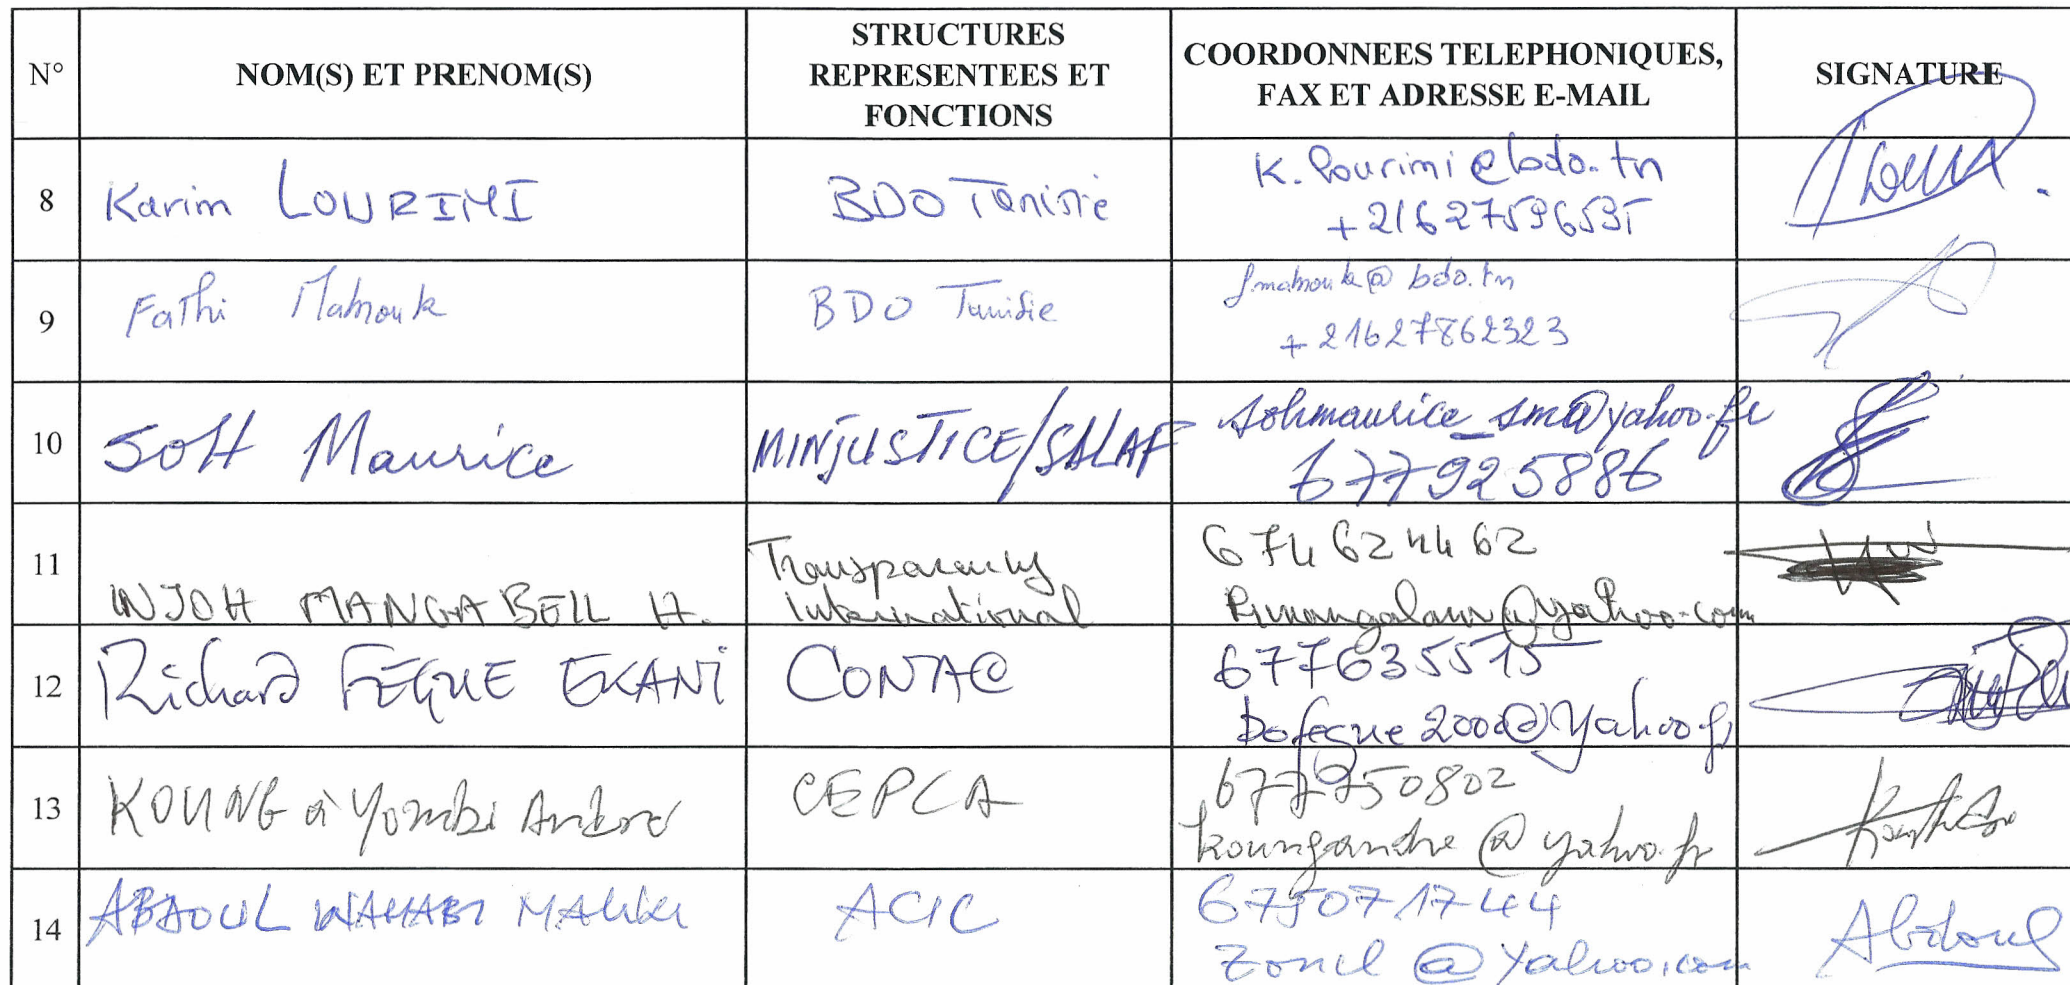 N°
NOM(S) ET PRENOM(S)
STRUCTURES
REPRESENTEES ET
FONCTIONS
COORDONNEES TELEPHONIQUES,
FAX ET ADRESSE E-MAIL
SIGNATURE
8
Karim LOURIMI
BDO Tunisie
K.lourimi@bdo.tn
9
Fathi Mabrouk
BDO Tunisie
f.mabrouk@bdo.tn
+21627862323
10
SOH Maurice
MINJUSTICE/SALAF
sohmaurice_sma@yahoo.fr
677925886
11
NJOH MANGA BELL H.
Transparency
International
674624462
12
Richard FEGUE EKANI
CONAC
677635515
13
KOUNG à Yombi André
CEPCA
677750802
koungandre@yahoo.fr
14
ABDOUL WAHABI Maliki
ACIC
675071744
Abdoul